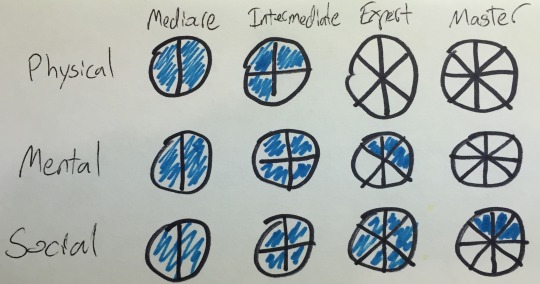 Mediare Intermediate Expert Master
Physical
Mental
Social